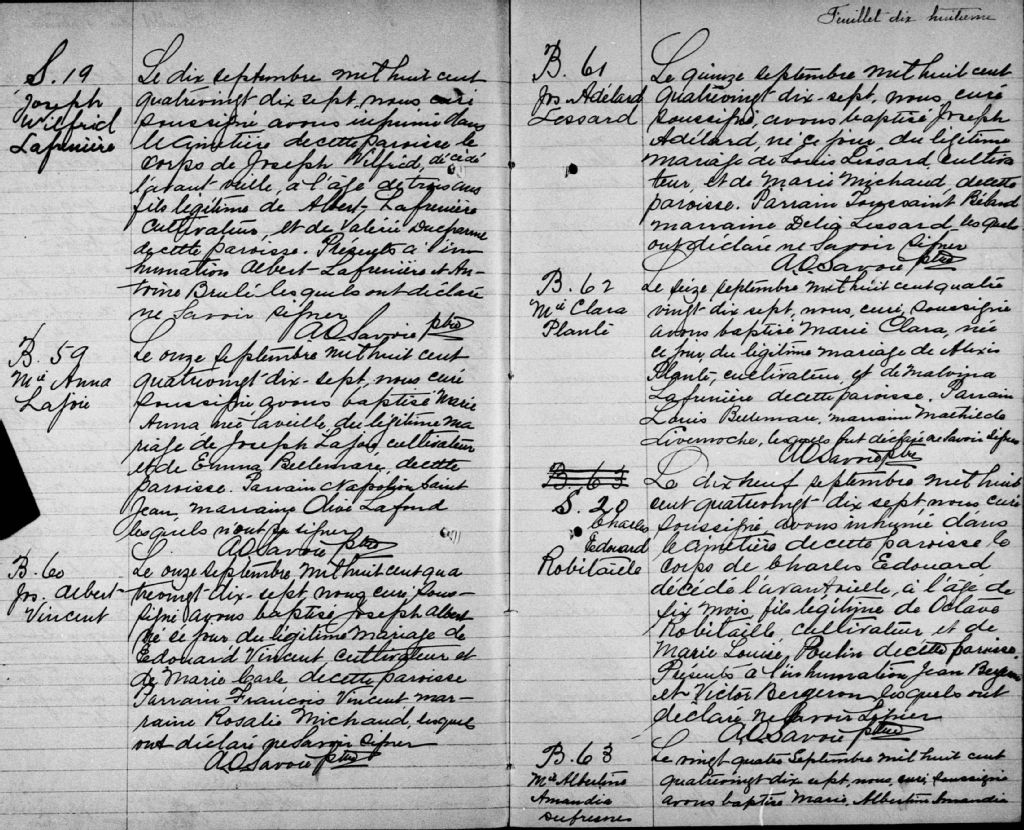 S. 19
Joseph
Wilfrid
Lafrenière
Le dix septembre mil huit cent
quatrevingt dix sept, nous curé
soussigné avons inhumé dans
le cimetière de cette paroisse le
corps de Joseph Wilfrid, décédé
l'avant veille, à l'âge de trois ans
fils légitime de Albert Lafrenière
cultivateur, et de Valérie Ducharme
de cette paroisse. Présents à l'in-
humation Albert Lafrenière et An-
toine Brulé lesquels ont déclaré
ne savoir signer
A O Savoie ptre
B. 59
Mie Anna
Lafoie
Le onze septembre mil huit cent
quatrevingt dix-sept, nous curé
soussigné avons baptisé Marie
Anna née la veille, du légitime ma
riage de Joseph Lafoie, cultivateur
et de Emma Bellemare, de cette
paroisse. Parrain Napoléon Saint
Jean, marraine Olive Lafond
lesquels n'ont su signer
A O Savoie ptre
B. 60
Jos. Albert
Vincent
Le onze septembre mil huit cent qua
trevingt dix-sept, nous curé sous-
signé avons baptisé Joseph Albert
né ce jour du légitime mariage de
Edouard Vincent, cultivateur et
de Marie Carle de cette paroisse
Parrain François Vincent mar-
raine Rosalie Michaud, lesquels
ont déclaré ne savoir signer
A O Savoie ptre
Feuillet dix huitième
B. 61
Jos Adélard
Lessard
Le quinze septembre mil huit cent
quatrevingt dix-sept, nous, curé
soussigné, avons baptisé Joseph
Adélard, né ce jour, du légitime
mariage de Louis Lessard, cultiva
teur, et de Marie Michaud, de cette
paroisse. Parrain Toussaint Béland
marraine Délia Lessard, lesquels
ont déclaré ne savoir signer
A O Savoie ptre
B. 62
Mie Clara
Planté
Le seize septembre mil huit cent quatre
vingt dix sept, nous, curé, soussigné
avons baptisé Marie Clara, née
ce jour, du légitime mariage de Alexis
Planté, cultivateur, et de Malvina
Lafrenière de cette paroisse. Parrain
Louis Bellemare, marraine Mathilde
Livernoche, lesquels ont déclaré ne savoir signer
A O Savoie ptre
B. 63
S. 20
Charles
Edouard
Robitaille
Le dix neuf septembre mil huit
cent quatrevingt dix sept, nous, curé
soussigné, avons inhumé dans
le cimetière de cette paroisse le
corps de Charles Edouard
décédé l'avant veille, à l'âge de
six mois, fils légitime de Octave
Robitaille, cultivateur et de
Marie Louise Poulin de cette paroisse.
Présents à l'inhumation Jean
et Victor Bergeron, lesquels ont
déclaré ne savoir signer
A O Savoie ptre
B. 63
Mie Albertine
Amandia
Dufresne
Le vingt quatre septembre mil huit cent
quatrevingt dix sept, nous, curé soussigné
avons baptisé Marie, Albertine Amandia